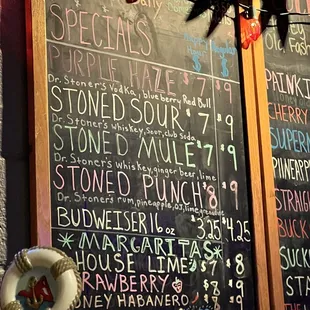 SPECIALS
PURPLE HAZE $7 $9
Dr. Stoner's Vodka, blueberry Red Bull
STONED SOUR $7 $9
Dr. Stoner's whiskey, sour, club soda
STONED MULE $7 $9
Dr. Stoners whiskey, ginger beer, lime
STONED PUNCH $8 $9
Dr. Stoners rum, pineapple, oj, lime, grenadine
BUDWEISER 16oz 3.25 $4.25
MARGARITAS
HOUSE LIME $7 $8
RAWBERRY $8 $9
NEY HABANERO $8 $9
Old
Fash
PAINKI
CHERRY
SUPERM
PIINEAPP
STRAIG
BUCK
SUCK
STA
THE